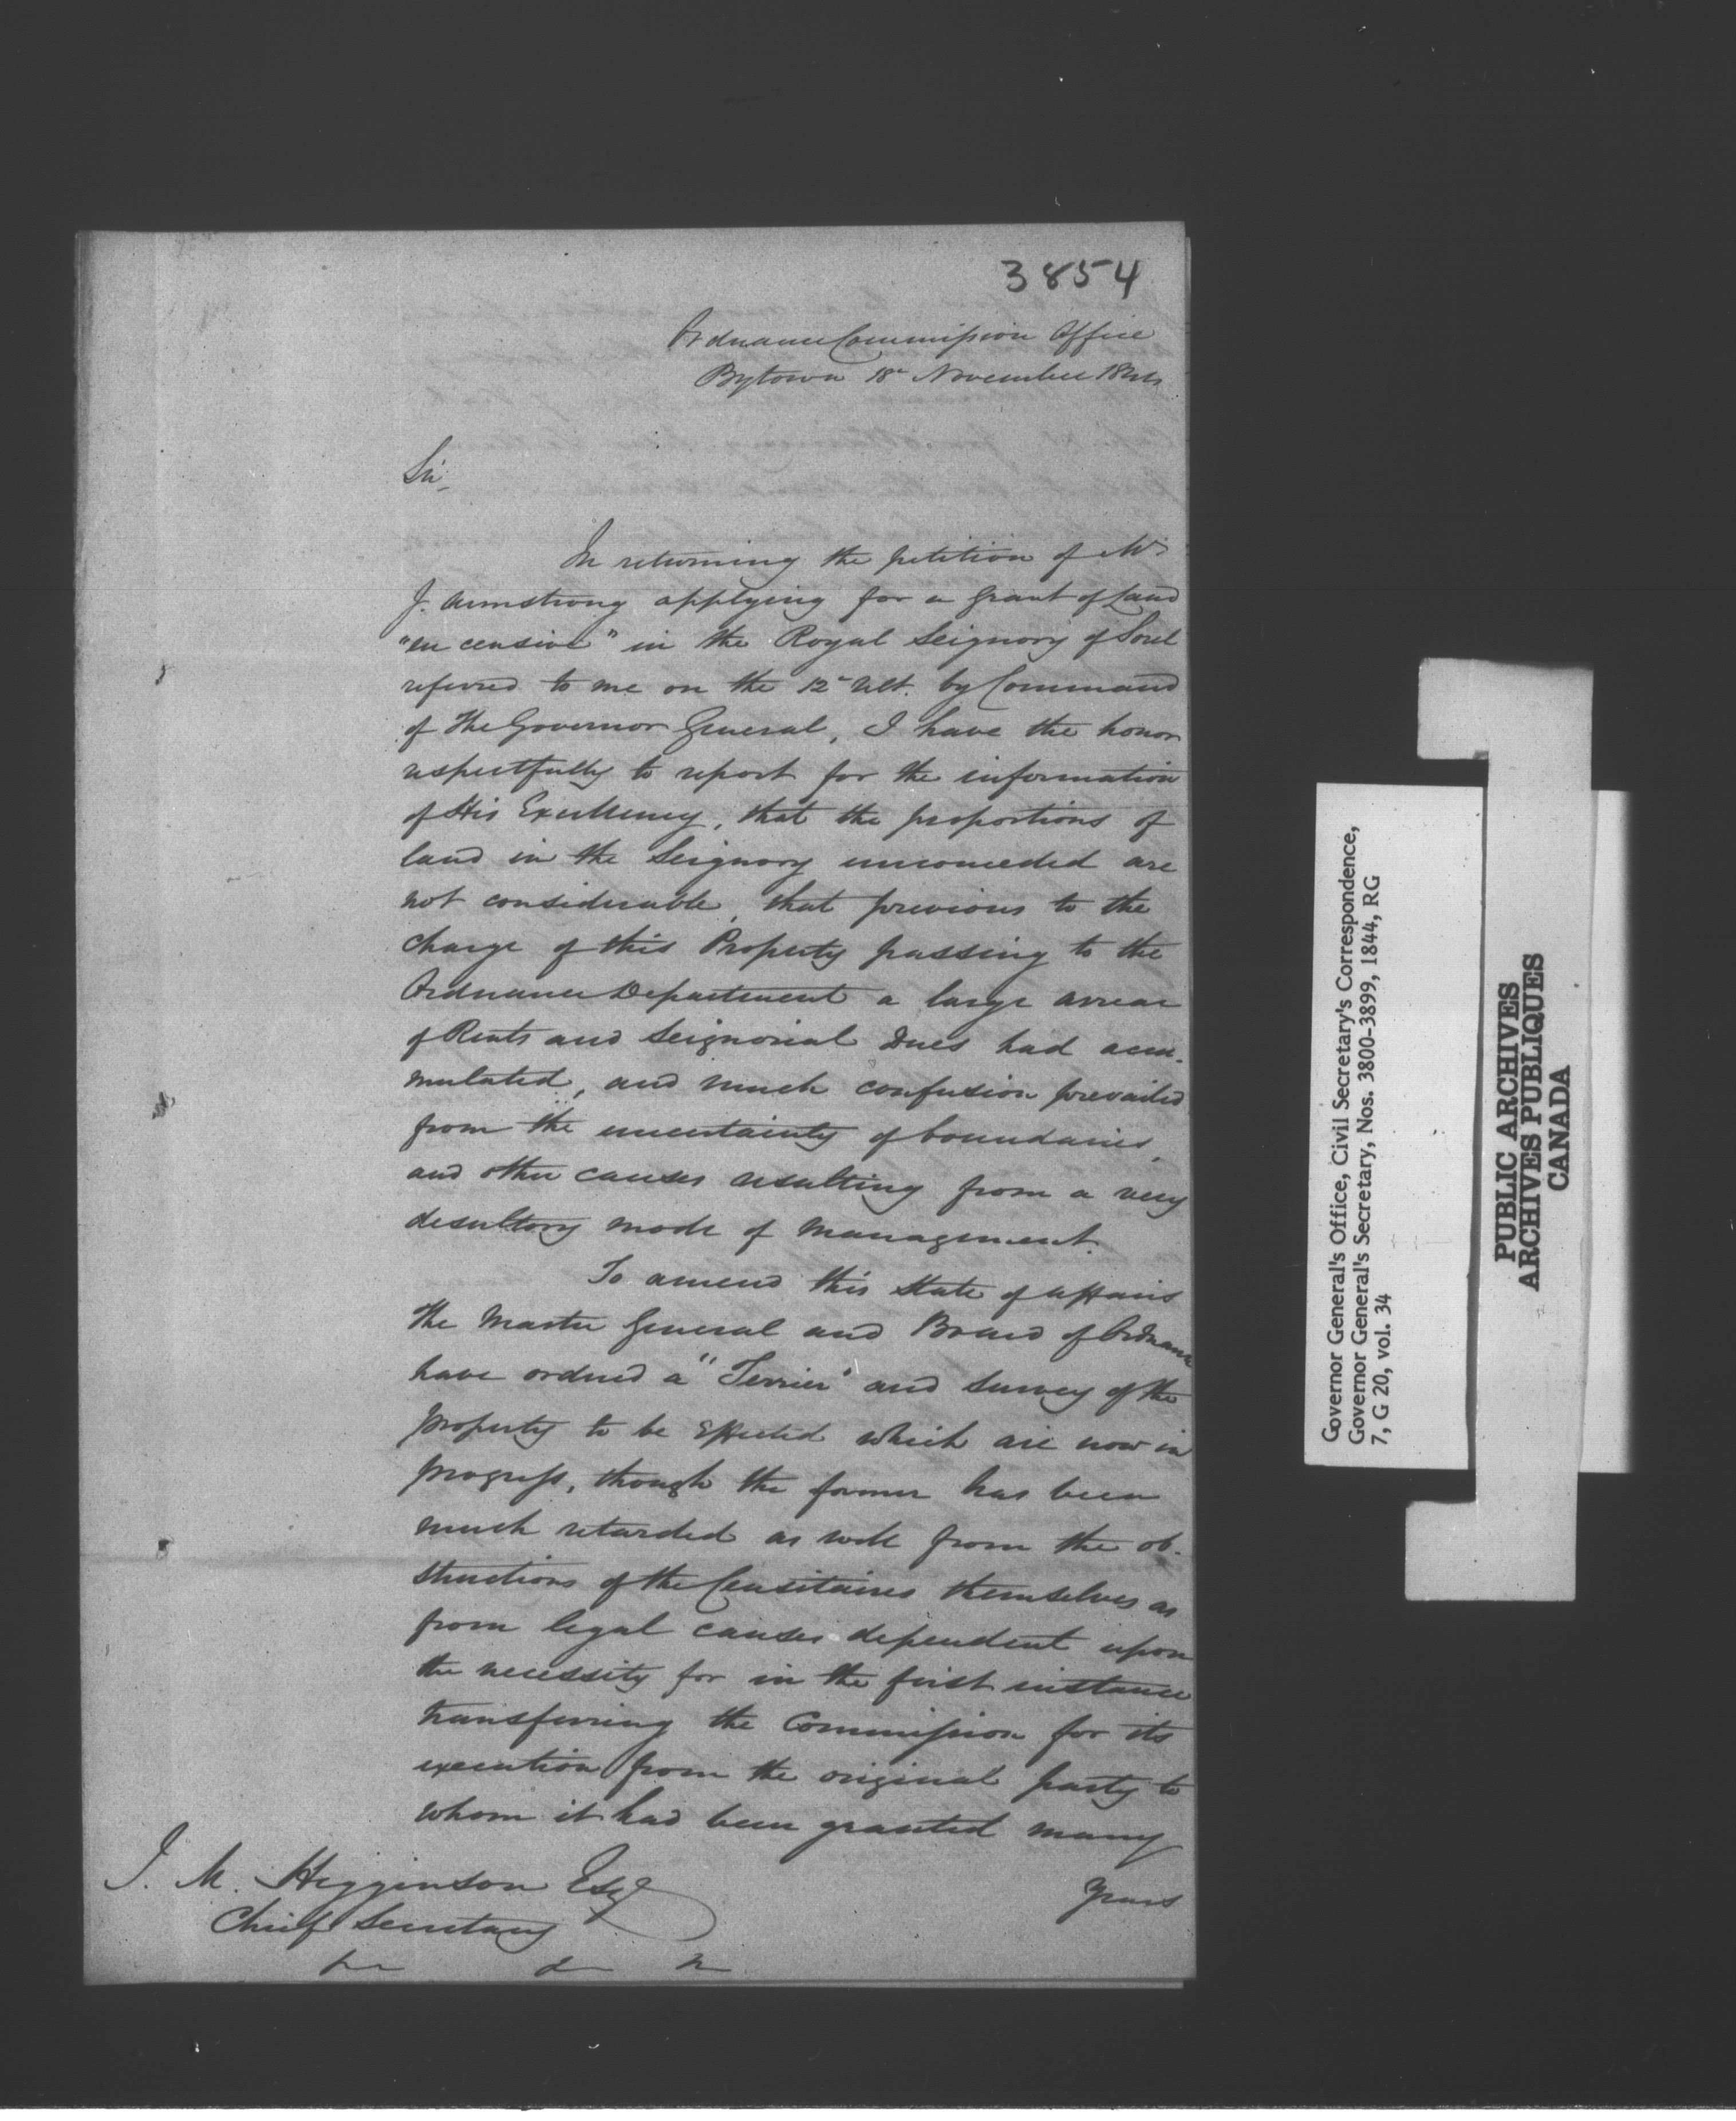 3854
Ordnance Commission Office
Bytown 18th November 1844
Sir,
In returning the petition of Mr
J. Armstrong applying for a grant of Land
"en censive" in the Royal Seignory of Sorel
referred to me on the 12th Ult. by Command
of The Governor General, I have the honor
respectfully to report for the information
of His Excellency, that the proportions of
land in the Seignory unconceded are
not considerable, that previous to the
charge of this Property passing to the
Ordnance Department a large arrear
of Rents and Seignorial Dues had accu-
mulated, and much confusion prevailed
from the uncertainty of boundaries,
and other causes resulting from a very
desultory mode of management.
To amend this State of affairs
the Master General and Board of Ordnance
have ordered a "Terrier" and Survey of the
property to be Effected which are now in
progress, though the former has been
much retarded as well from the ob-
structions of the Censitaires themselves as
from legal causes dependent upon
the necessity for in the first instance
transferring the Commission for its
execution from the original party to
whom it had been granted many
Years
J. M. Higginson Esqr
Chief Secretary
Governor General's Office, Civil Secretary's Correspondence,
Governor General's Secretary, Nos. 3800-3899, 1844, RG
7, G 20, vol. 34
PUBLIC ARCHIVES
ARCHIVES PUBLIQUES
CANADA